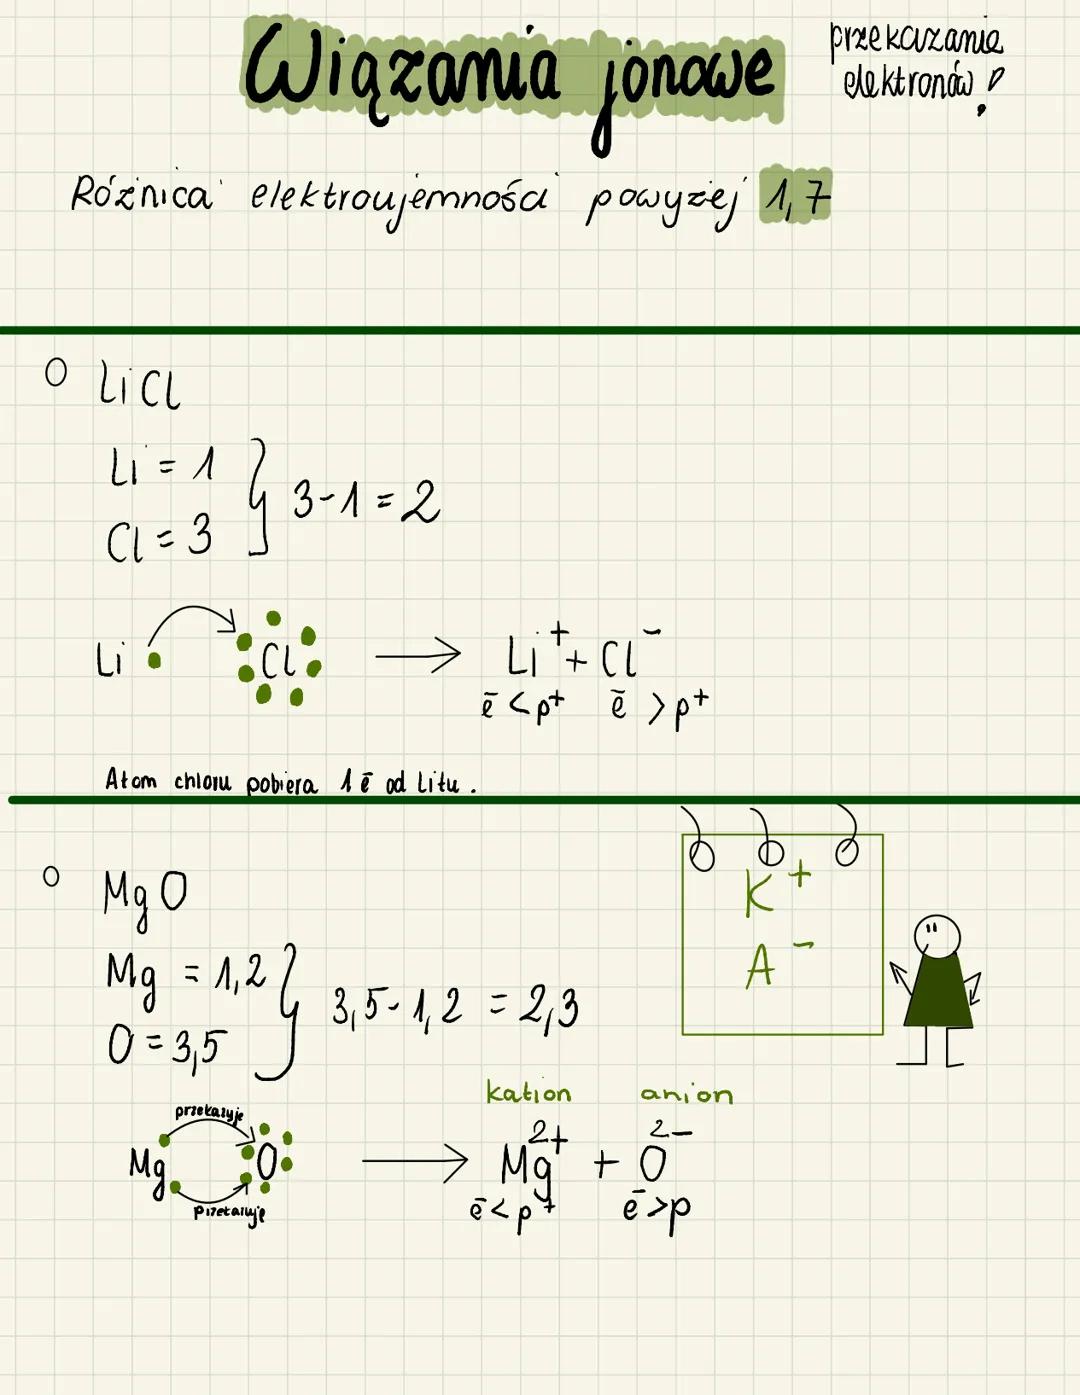 Wiązania jonowe
przekazanie
elektronów!
Różnica elektroujemności powyżej 1,7
LiCl
Li = 1
Cl = 3
3-1 = 2
Li Cl → Li⁺ + Cl⁻
ē < p⁺ ē > p⁺
Atom chloru pobiera 1 ē od Litu.
K⁺
A⁻
MgO
Mg = 1,2
O = 3,5
3,5-1,2 = 2,3
kation anion
przekazuje
Mg O → Mg²⁺ + O²⁻
przekazuje
ē < p⁺ ē > p